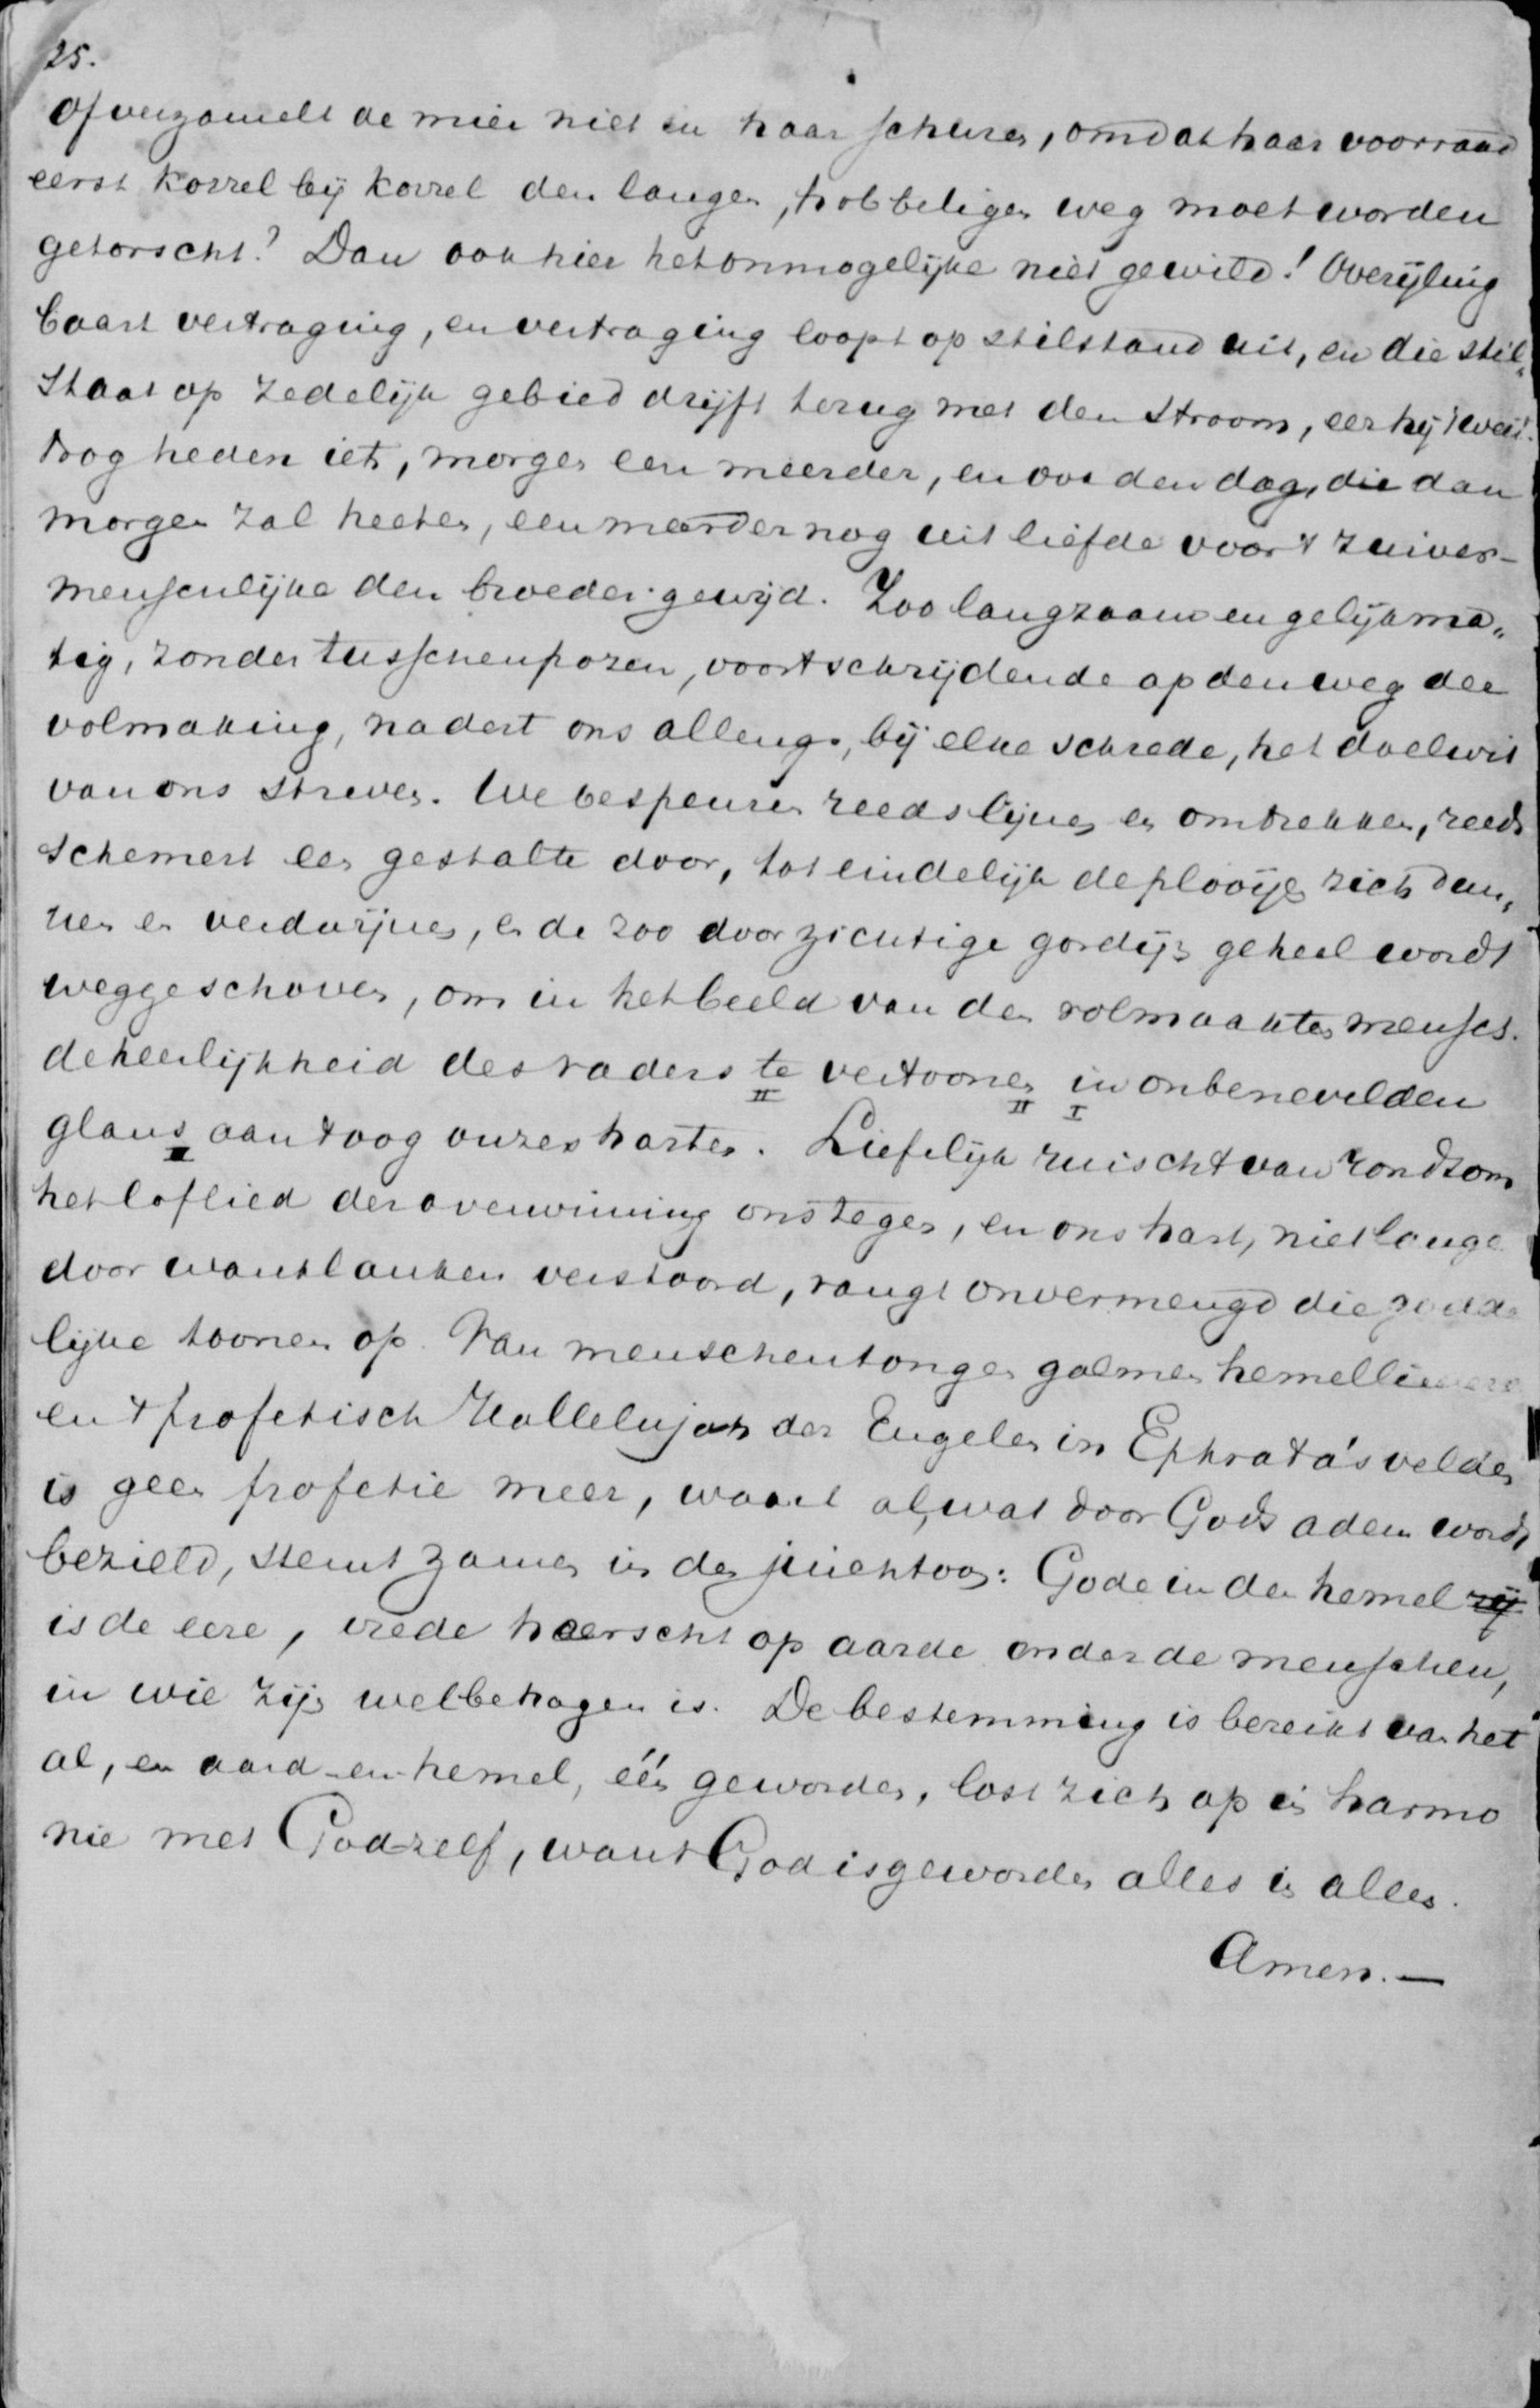 25.
Of verzamelt de mier niet in haar schuren, omdat haar voorraad
eerst korrel bij korrel den langen, hobbeligen weg moet worden
getorscht? Dan ook hier het onmogelijke niet gewild! Overijling
baart vertraging, en vertraging loopt op stilstand uit, en die stil„
staat op zedelijk gebied drijft terug met den stroom, eer hij 't weet.
Nog heden iets, morgen een meerder, en voor den dag, die dan
morgen zal heeten, een meerder nog uit liefde voor 't zuiver-
menschelijke den broeder gewijd. Zoo langzaam en gelijkma„
tig, zonder tusschenpozen, voortschrijdende op den weg der
volmaking, nadert ons allengs, bij elke schrede, het doelwit
van ons streven. We bespeuren reeds lijnen en omtrekken, reeds
schemert een gestalte door, tot eindelijk de plooijen zich dun„
nen en verdwijnen, en de zoo doorzichtige gordijn geheel wordt
weggeschoven, om in het beeld van den volmaakten mensch
de heerlijkheid des vaders te vertoonen in onbenevelden
II II I
glans aan 't oog onzes harten. Liefelijk ruischt van rondsom
II
het loflied der overwinning ons tegen, en ons hart, niet lange
door wanklanken verstoord, vangt onvermengd die
lijke toonen op. Van menschentongen galmen
en 't profetisch Hallelujah der Engelen in Ephrata's velden
is geen profetie meer, want al, wat door Gods adem wordt
bezield, stemt zamen in den juichtoon: Gode in den hemel zij
is de eere, vrede heerscht op aarde onder de menschen,
in wie zijn welbehagen is. De bestemming is bereikt van het
al, en aard-en-hemel, één geworden, lost zich op in harmo
nie met God-zelf, want God is geworden alles in allen.
Amen.—